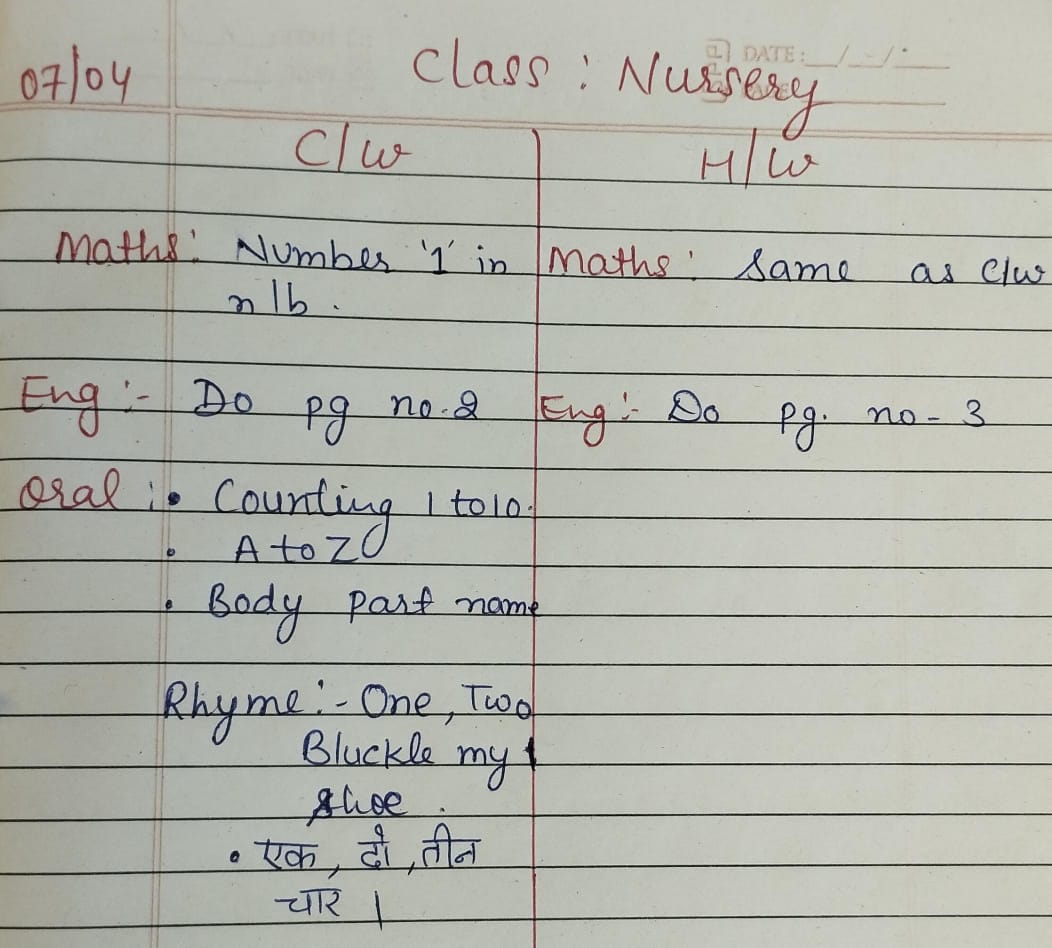 07/04 Class : Nursery
DATE: / - / .
C/w H/w
Maths: Number '1' in Maths: Same as C/w
n/b.
Eng :- Do pg no. 2 Eng :- Do pg. no - 3
Oral :• Counting 1 to 10.
• A to Z
• Body part name
Rhyme :- One, Two
Bluckle my
shoe.
• एक, दो, तीन
चार।